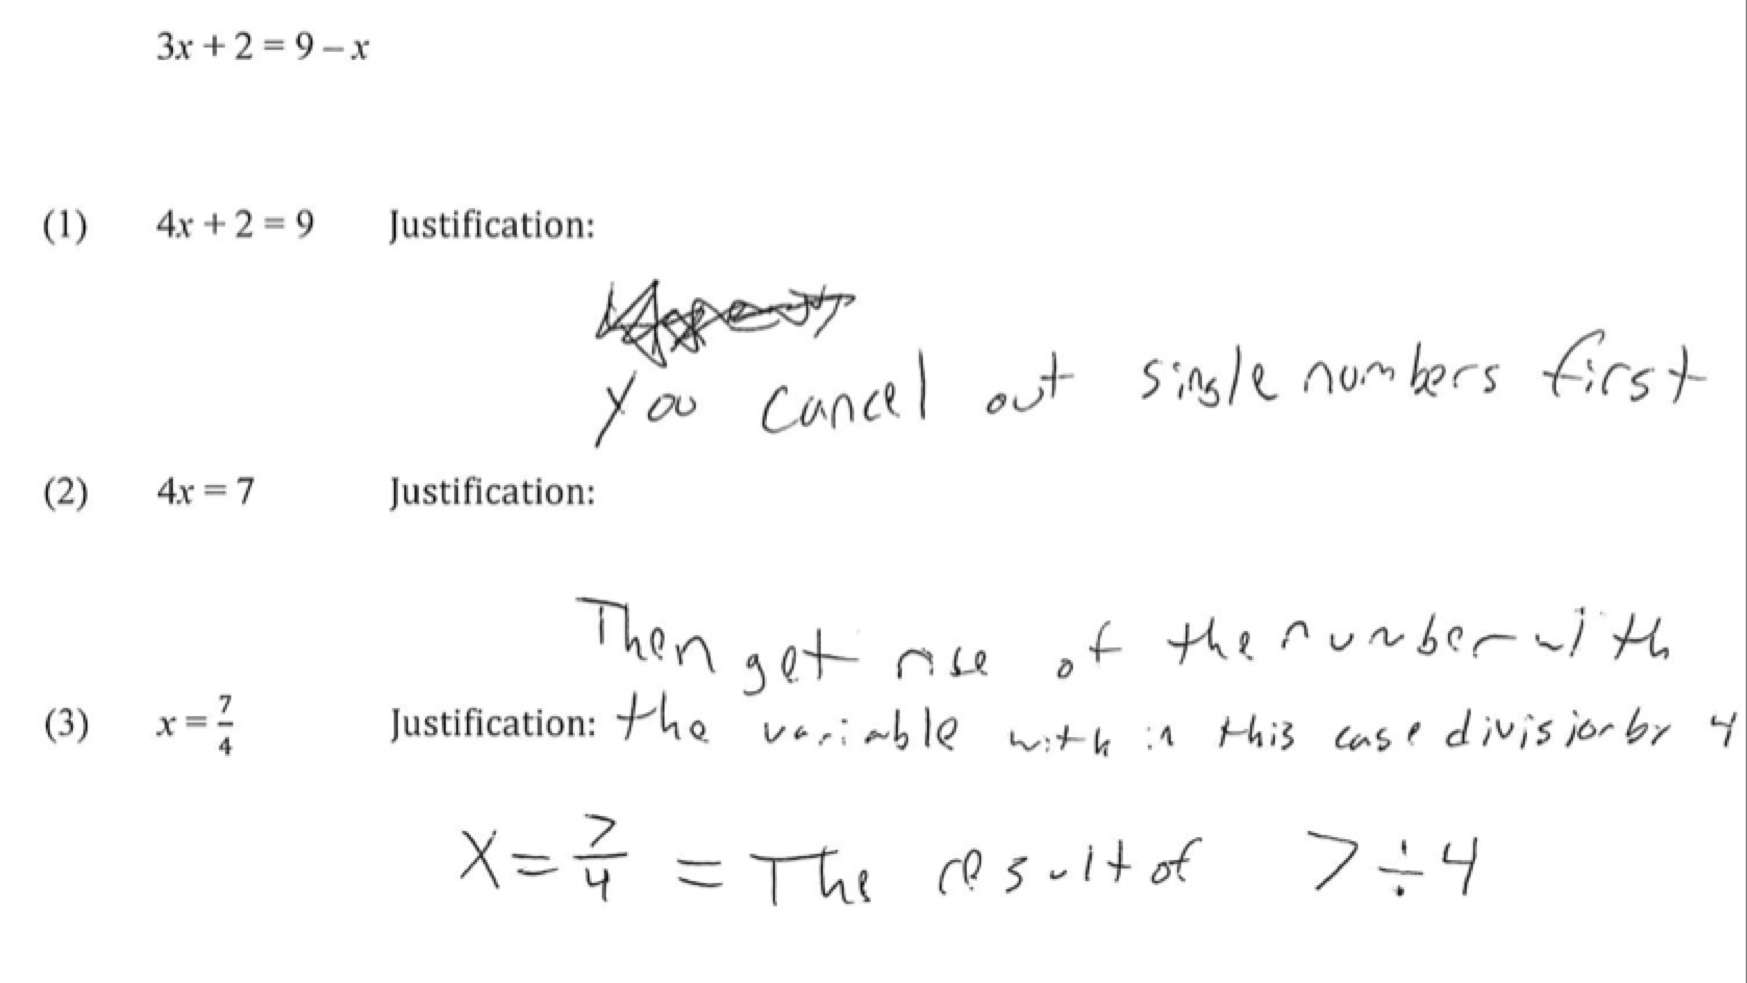 3x + 2 = 9 – x
(1) 4x + 2 = 9 Justification:
You cancel out single numbers first
(2) 4x = 7 Justification:
Then get rise of the number with
(3) x = 7/4 Justification: the variable with in this case division by 4
X = 7/4 = The result of 7 ÷ 4